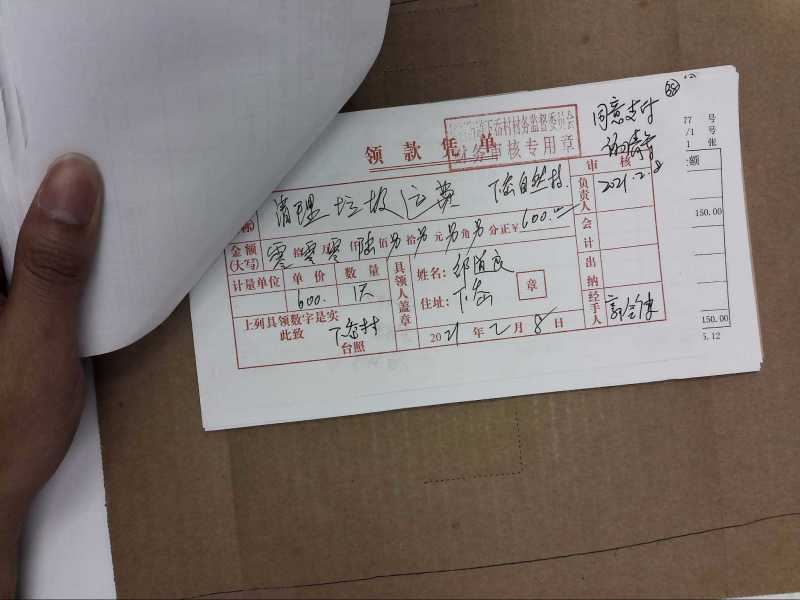 同意支付
2021.2.8
下岙村村务监督委员会
务审核专用章
领款凭单
清理垃圾运费 下岙自然村
金额(大写) 零拾零万零仟陆佰 拾 元 角 分正¥600.00
计量单位 单价 数量
600. 1天
上列具领数字是实
此致 下岙村 台照
具领人盖章
姓名:
住址:下岙 章
2021年2月8日
审核
负责人
会计
出纳
经手人
77 号
/1 号
1 张
额
150.00
150.00
5.12